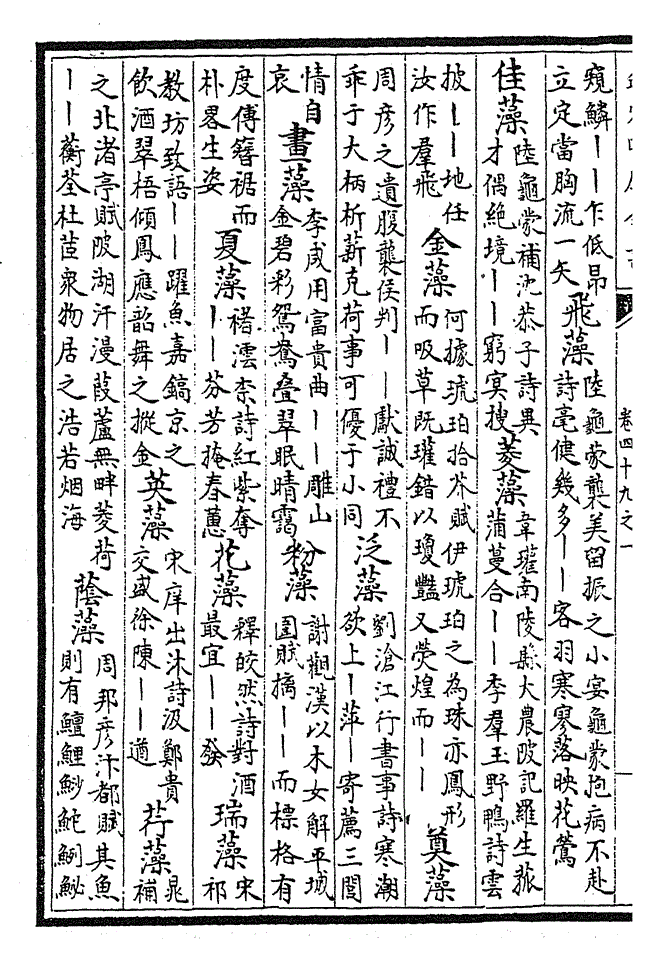 卷四十九之一
窺鱗丨丨乍低昂立定當胸流一矢 飛藻 陸龜蒙襲美留振之小宴龜蒙抱病不赴詩亳健幾多丨丨客羽寒寥落映花鶯
佳藻 陸龜蒙補沈恭子詩異才偶絕境丨丨窮冥搜 菱藻 韋瓘南陵縣大農陂記羅生菰蒲蔓合丨丨李羣玉野鴨詩雲
披丨丨地任汝作羣飛 金藻 何據琥珀拾芥賦伊琥珀之為珠亦鳳形而吸草既璀錯以瓊豔又熒煌而丨丨 奠藻
周彥之遺腹襲侯判丨丨獻誠禮不乖于大柄析薪克荷事可優于小同 泛藻 劉滄江行書事詩寒潮欲上丨萍丨寄薦三閭
情自哀 畫藻 李咸用富貴曲丨丨雕山金碧彩鴛鴦叠翠眠晴靄 粉藻 謝觀漢以木女解平城圍賦摛丨丨而標格有
度傅簪裾而朴畧生姿 夏藻 褚澐柰詩紅紫奪丨丨芬芳掩春蕙 花藻 釋皎然詩對酒最宜丨丨發 瑞藻 宋祁
教坊致語丨丨躍魚嘉鎬京之飲酒翠梧傾鳳應韶舞之摐金 英藻 宋庠出沐詩汲鄭貴交盛徐陳丨丨遒 荇藻 晁補
之北渚亭賦陂湖汗漫葭蘆無畔菱荷丨丨蘅荃杜茝衆物居之浩若烟海 蔭藻 周邦彥汴都賦其魚則有鱣鯉鯋鮀鮦鮅